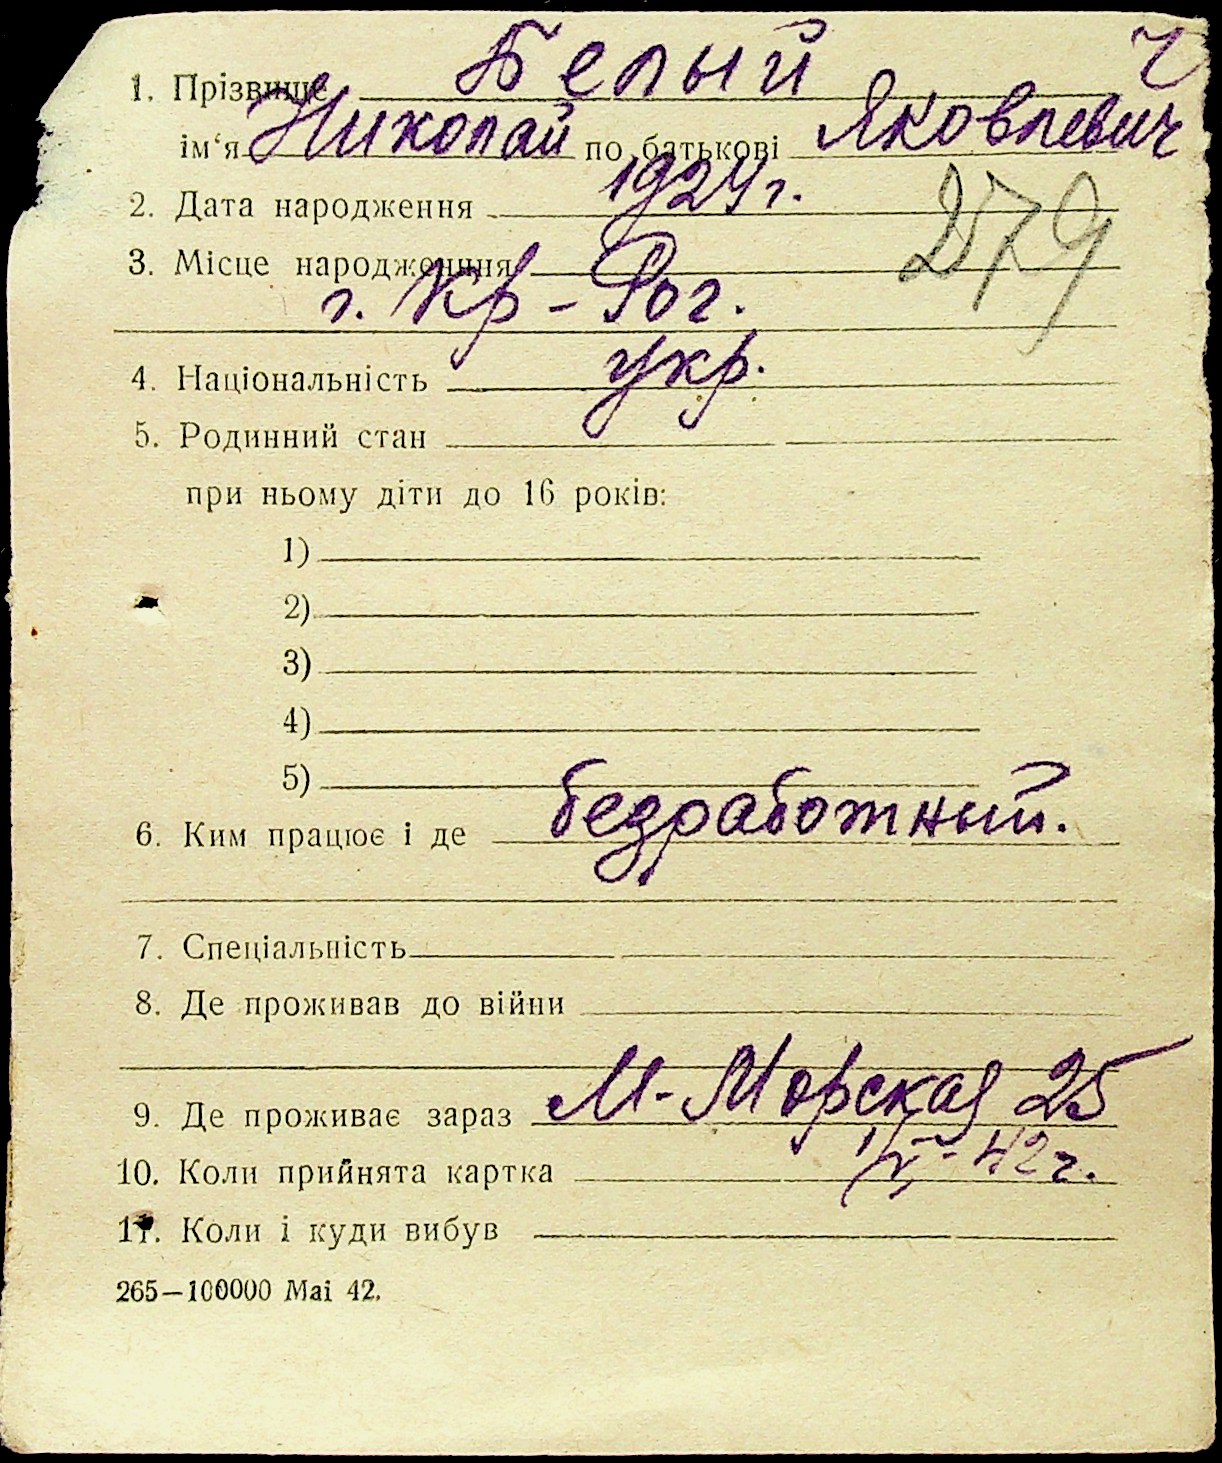 1. Прізвище Белый Ч
ім‘я Николай по батькові Яковлевич
2. Дата народження 1924 г. 279
3. Місце народженння
г. Кр-Рог.
4. Національність укр.
5. Родинний стан
при ньому діти до 16 років:
1)
2)
3)
4)
5)
6. Ким працює і де безработный.
7. Спеціальність
8. Де проживав до війни
9. Де проживає зараз М-Морская 25
10. Коли прийнята картка 42 г.
11. Коли і куди вибув
265—100000 Mai 42.